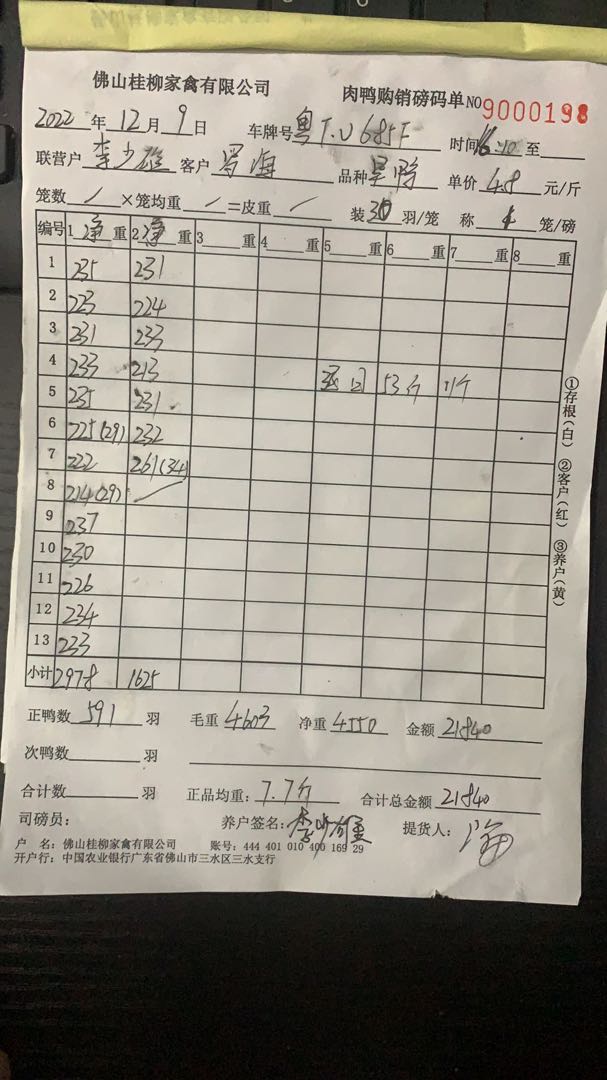 佛山桂柳家禽有限公司 肉鸭购销磅码单 NO 9000198
2022 年 12 月 9 日 车牌号 粤T.U685F 时间 16:10 至
联营户 李少雄 客户 海 品种 单价 4.8 元/斤
笼数 / ×笼均重 / =皮重 / 装 30 羽/笼 称 1 笼/磅
编号 1 净 重 2 净 重 3 重 4 重 5 重 6 重 7 重 8 重
1 235 231
2 223 224
3 231 233
4 233 213 返回 53斤 11个
5 235 231
6 225(29) 232
7 222 261(34)
8 214(29) /
9 237
10 230
11 226
12 234
13 233
小计 2978 1625
正鸭数 591 羽 毛重 4603 净重 4550 金额 21840
次鸭数 羽
合计数 羽 正品均重: 7.7斤 合计总金额 21840
司磅员: 养户签名: 李少雄 提货人: 海
户 名: 佛山桂柳家禽有限公司 账号: 444 401 010 400 169 29
开户行: 中国农业银行广东省佛山市三水区三水支行
①存根(白) ②客户(红) ③养户(黄)